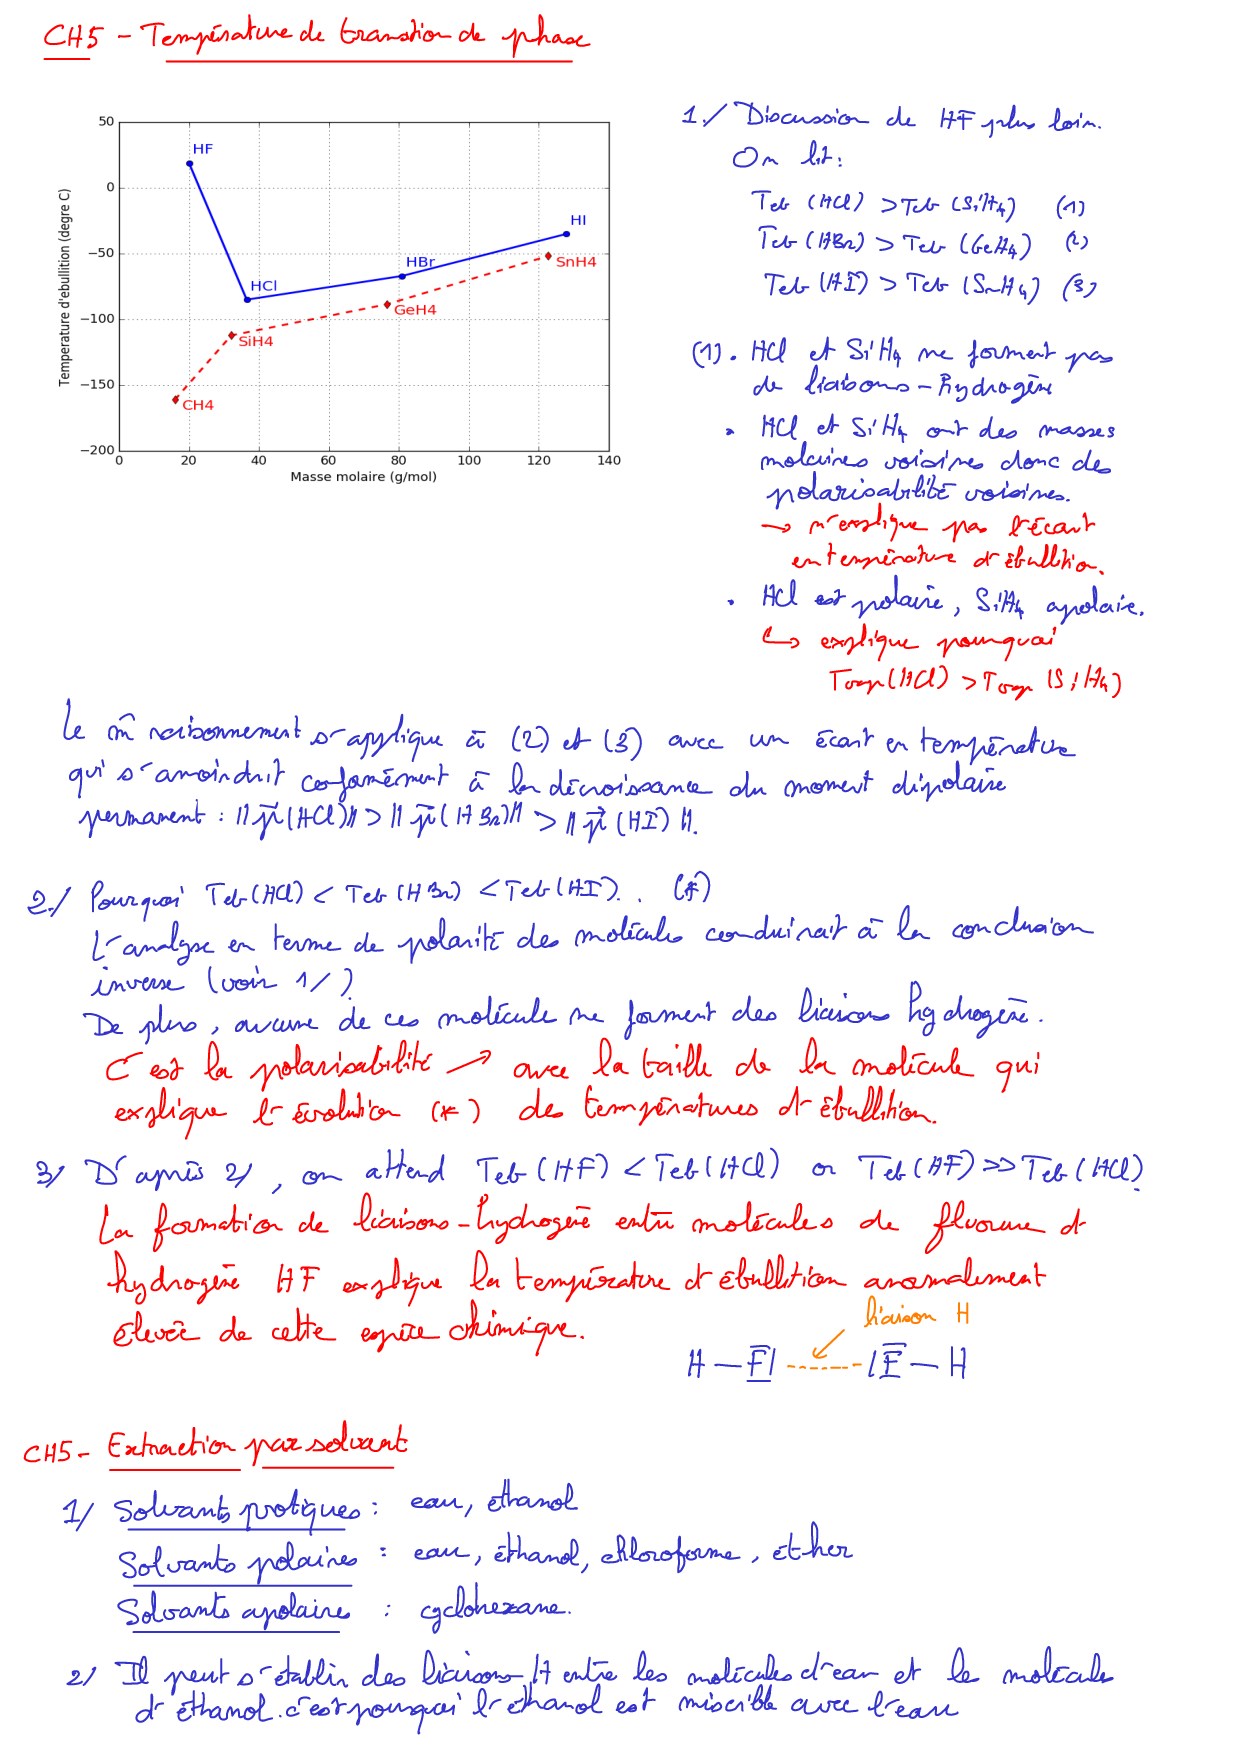 CH5 - Température de transtion de phase
50
0
−50
−100
−150
−200
0 20 40 60 80 100 120 140
Temperature d'ebullition (degre C)
Masse molaire (g/mol)
HF
HCl
HBr
HI
CH4
SiH4
GeH4
SnH4
1./ Discussion de HF plus loin.
On lit:
Teb (HCl) > Teb (SiH4) (1)
Teb (HBr) > Teb (GeH4) (2)
Teb (HI) > Teb (SnH4) (3)
(1). HCl et SiH4 ne forment pas
de liaisons-hydrogène
. HCl et SiH4 ont des masses
molaires voisines donc des
polarisabilité voisines.
→ n'explique pas l'écart
en température d'ébullition.
. HCl est polaire, SiH4 apolaire.
↳ explique pourquoi
(HCl) > (SiH4)
Le m̂ raisonnement s'applique à (2) et (3) avec un écart en température
qui s'amoindrit conformément à la décroissance du moment dipolaire
permanent : ||μ⃗(HCl)|| > ||μ⃗(HBr)|| > ||μ⃗(HI)||.
2./ Pourquoi Teb(HCl) < Teb(HBr) < Teb(HI). . (*)
L'analyse en terme de polarité des molécules conduirait à la conclusion
inverse (voir 1/)
De plus, aucune de ces molécule ne forment des liaisons hydrogène.
C'est la polarisabilité ↗ avec la taille de la molécule qui
explique l'évolution (*) des températures d'ébullition.
3/ D'après 2/, on attend Teb(HF) < Teb(HCl) or Teb(HF) >> Teb(HCl).
La formation de liaisons-hydrogène entre molécules de fluorure d'
hydrogène HF explique la température d'ébullition anormalement
élevée de cette espèce chimique.
liaison H
H — F| ------- |F — H
CH5 - Extraction par solvant
1/ Solvants protiques : eau, éthanol
Solvants polaires : eau, éthanol, chloroforme, éther
Solvants apolaires : cyclohexane.
2/ Il peut s'établir des liaisons-H entre les molécules d'eau et le molécules
d'éthanol. c'est pourquoi l'éthanol est miscible avec l'eau